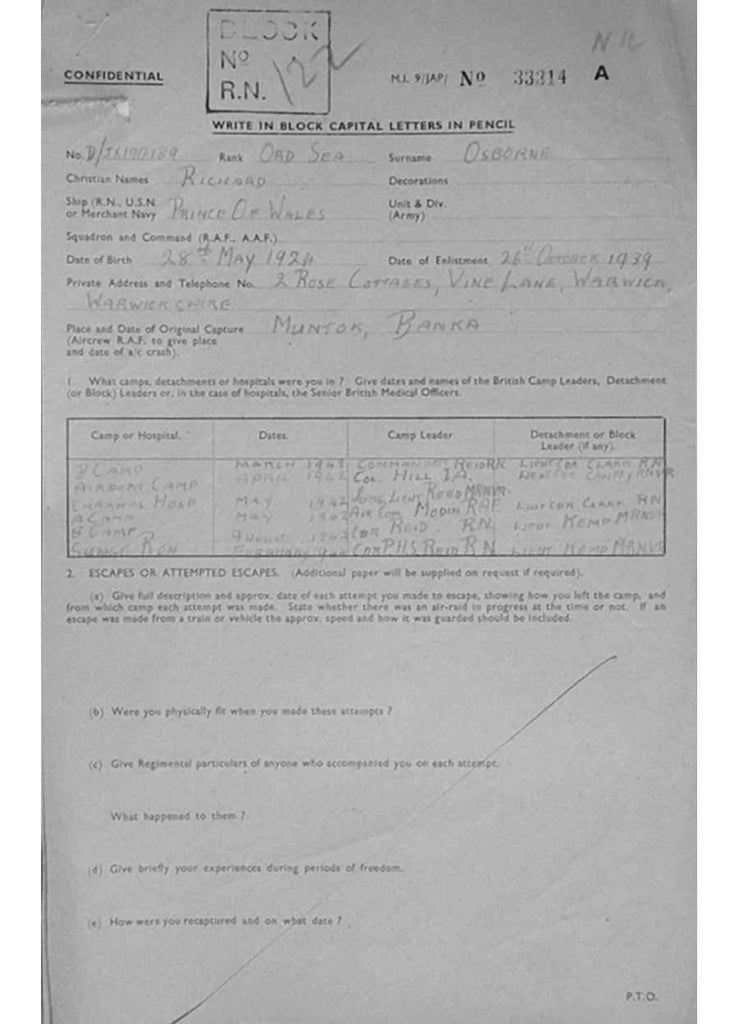 BLOCK
Nº 122
R.N.
N 16
CONFIDENTIAL
M.I. 9/JAP/ Nº 33314 A
WRITE IN BLOCK CAPITAL LETTERS IN PENCIL
No. D/JX170189 Rank ORD SEA Surname OSBORNE
Christian Names RICHARD Decorations
Ship (R.N., U.S.N. Unit & Div.
or Merchant Navy PRINCE OF WALES (Army)
Squadron and Command (R.A.F., A.A.F.)
Date of Birth 28TH MAY 1924 Date of Enlistment 26TH OCTOBER 1939
Private Address and Telephone No. 2 ROSE COTTAGES, VINE LANE, WARWICK,
WARWICKSHIRE
Place and Date of Original Capture MUNTOK, BANKA
(Aircrew R.A.F. to give place
and date of a/c crash).
1. What camps, detachments or hospitals were you in ? Give dates and names of the British Camp Leaders, Detachment
(or Block) Leaders or, in the case of hospitals, the Senior British Medical Officers.
Camp or Hospital. Dates. Camp Leader Detachment or Block
Leader (if any).
B CAMP MARCH 1942 COMMANDER REID RN LIEUT COR CLARK RN
AIRPORT CAMP APRIL 1942 COL. HILL I.A. RNVR
HOSP MAY 1942 LIEUT REED MRNVR
A CAMP MAY 1942 AIR COM MODIN RAF LIEUT COR CLARK RN
B CAMP AUGUST 1942 COR REID RN. LIEUT KEMP MRNVR
SUNGE RON FEBRUARY COR PHS REID RN LIEUT KEMP MRNVR
2. ESCAPES OR ATTEMPTED ESCAPES. (Additional paper will be supplied on request if required).
(a) Give full description and approx. date of each attempt you made to escape, showing how you left the camp, and
from which camp each attempt was made. State whether there was an air-raid in progress at the time or not. If an
escape was made from a train or vehicle the approx. speed and how it was guarded should be included.
(b) Were you physically fit when you made these attempts ?
(c) Give Regimental particulars of anyone who accompanied you on each attempt.
What happened to them ?
(d) Give briefly your experiences during periods of freedom.
(e) How were you recaptured and on what date ?
P.T.O.